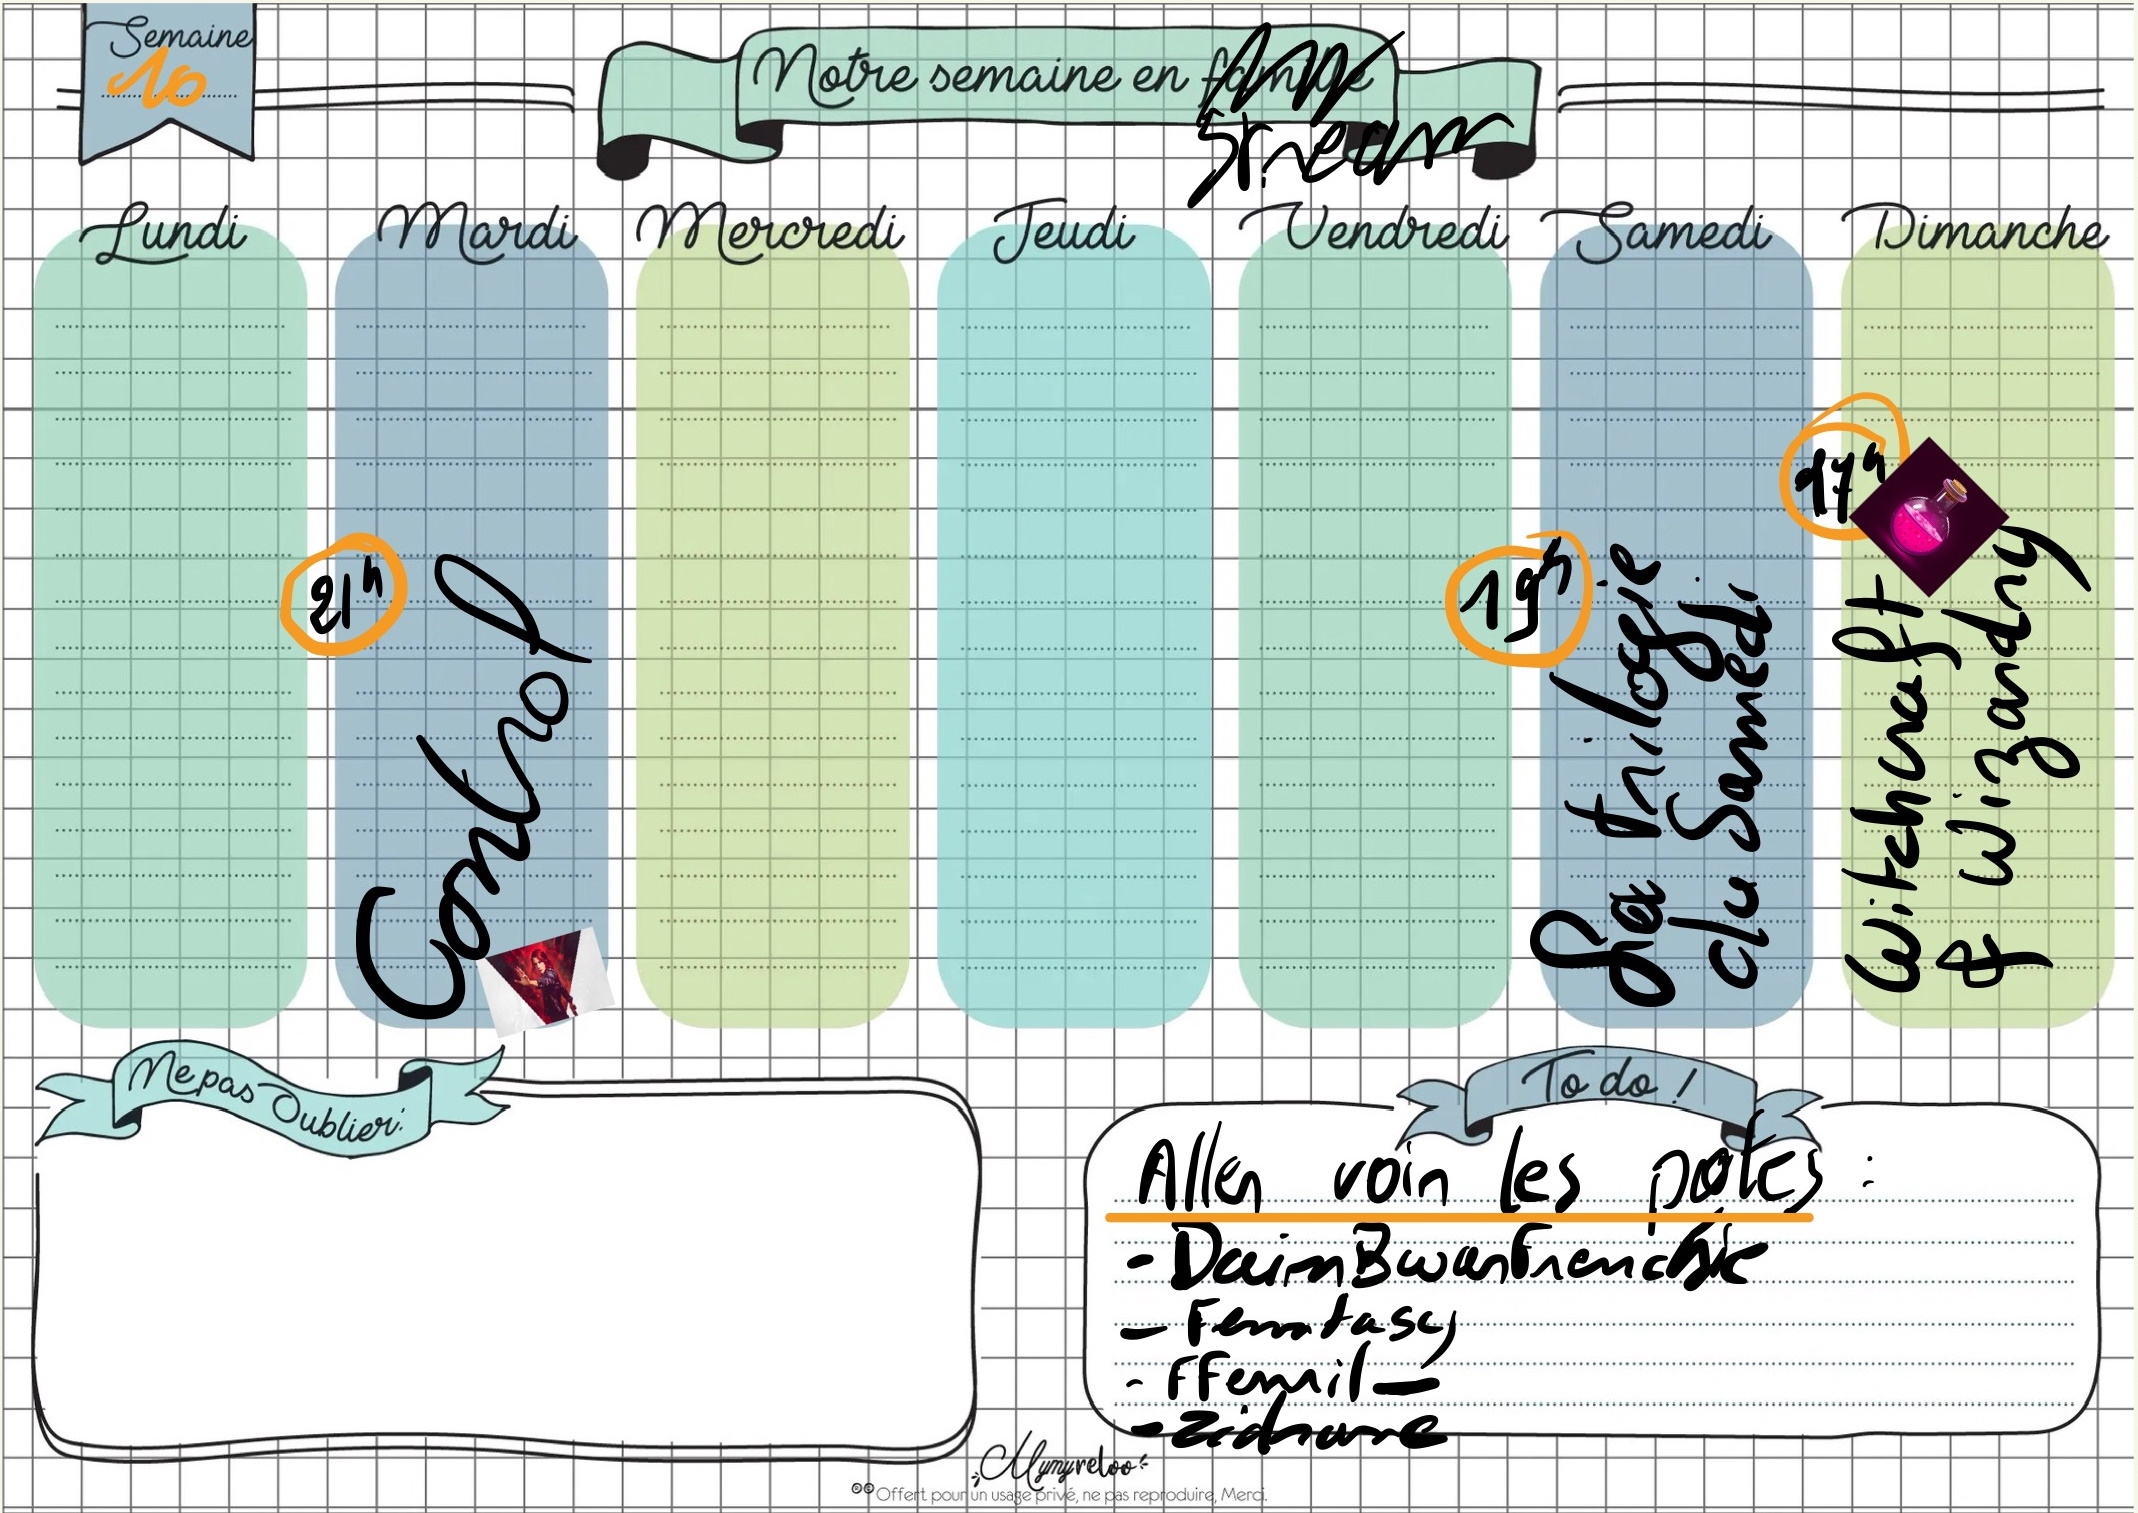 Semaine
16
Notre semaine en famille
Stream
Lundi
Mardi
Mercredi
Jeudi
Vendredi
Samedi
Dimanche
21h
Control
19h
La trilogie
du Samedi
17h
Witchcraft
& Wizardry
Ne pas Oublier!
To do !
Aller voir les potes :
- DaimBwanFrenchie
- Femtasy
- FFemil_
- Zidrome
Mymyreloo
Offert pour un usage privé, ne pas reproduire, Merci.